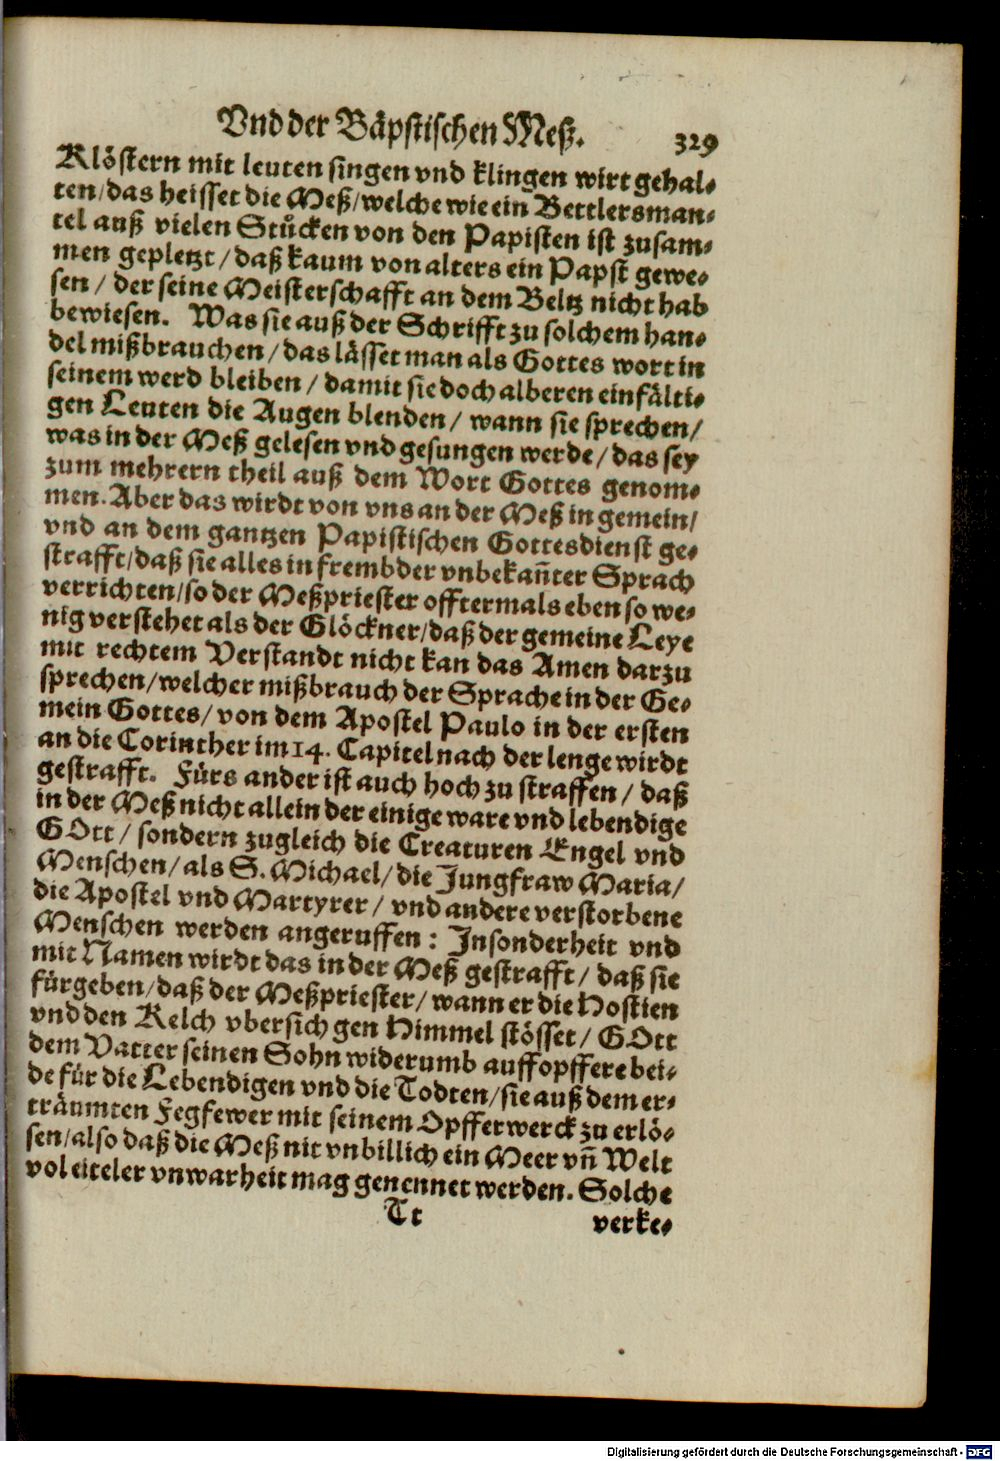 Vnd der Bäpstischen Meß. 329
Klöstern mit leuten singen vnd klingen wirt gehal-
ten/das heisset die Meß/welche wie ein Bettlersman-
tel auß vielen Stůcken von den Papisten ist zusam-
men gepletzt/daß kaum von alters ein Papst gewe-
sen/der seine Meisterschafft an dem Beltz nicht hab
bewiesen. Was sie auß der Schrifft zu solchem han-
del mißbrauchen/das lässet man als Gottes wort in
seinem werd bleiben/damit sie doch alberen einfälti-
gen Leuten die Augen blenden/wann sie sprechen/
was in der Meß gelesen vnd gesungen werde/das sey
zum mehrern theil auß dem Wort Gottes genom-
men. Aber das wirdt von vns an der Meß in gemein/
vnd an dem gantzen Papistischen Gottesdienst ge-
strafft/daß sie alles in frembder vnbekañter Sprach
verrichten/so der Meßpriester offtermals eben so we-
nig verstehet als der Glöckner/daß der gemeine Leye
mit rechtem Verstandt nicht kan das Amen darzu
sprechen/welcher mißbrauch der Sprache in der Ge-
mein Gottes/von dem Apostel Paulo in der ersten
an die Corinther im 14. Capitel nach der lenge wirdt
gestrafft. Fürs ander ist auch hoch zu straffen/daß
in der Meß nicht allein der einige ware vnd lebendige
GOtt/sondern zugleich die Creaturen Engel vnd
Menschen/als S. Michael/die Jungfraw Maria/
die Apostel vnd Martyrer/vnd andere verstorbene
Menschen werden angeruffen: Insonderheit vnd
mit Namen wirdt das in der Meß gestrafft/daß sie
fürgeben/daß der Meßpriester/wann er die Hostien
vnd den Kelch vbersich gen Himmel stösset/GOtt
dem Vatter seinen Sohn widerumb auffopffere bei-
de für die Lebendigen vnd die Todten/sie auß dem er-
träumten Fegfewer mit seinem Opfferwerck zu erlö-
sen/also daß die Meß nit vnbillich ein Meer vñ Welt
vol eiteler vnwarheit mag genennet werden. Solche
Tt verke-
Digitalisierung gefördert durch die Deutsche Forschungsgemeinschaft - DFG